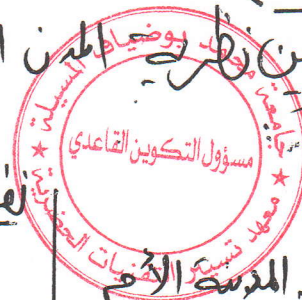 ن نظرية المدن ا
جامعة محمد بوضياف المسيلة
مسؤول التكوين القاعدي
معهد تسيير التقنيات الحضرية
المدينة الأم